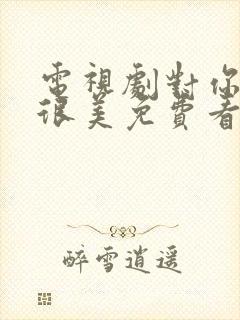 電視劇對你
很美免費看
醉雪逍遥